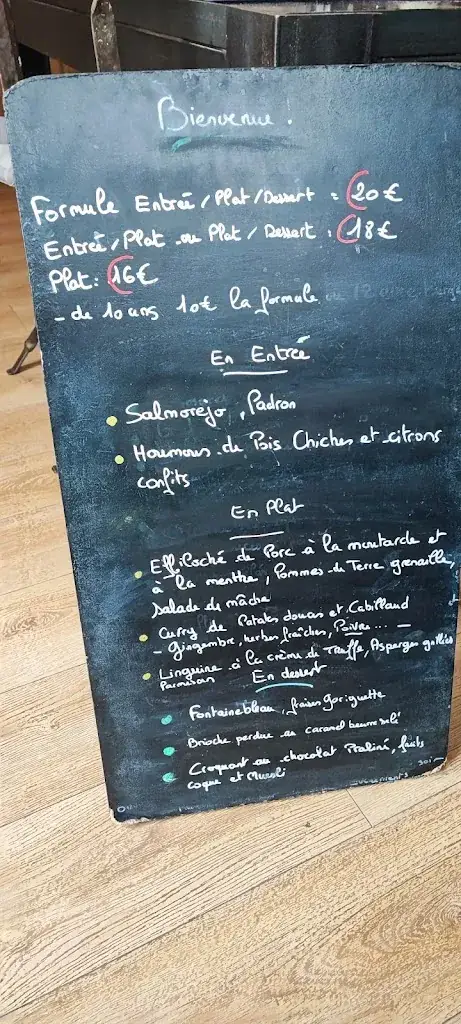 Bienvenue.
Formule Entrée / Plat / Dessert = 20€
Entrée / Plat ou Plat / Dessert : 18€
Plat : 16€
- de 10 ans 10€ la formule
En Entrée
Salmorejo, Padron
Houmous de Pois Chiches et citrons
confits
En Plat
Effiloché de Porc à la moutarde et
à la menthe, Pommes de Terre grenaille,
salade de mâche
Curry de Patates douces et Cabillaud
- Gingembre, herbes fraîches, Poivre... -
Linguine à la crème de Truffe, Asperges grillées
Parmesan
En dessert
Fontainebleau, fraises Gariguette
Brioche perdue au caramel beurre salé
Croquant au chocolat Praliné, fruits
coque et Muesli
soir